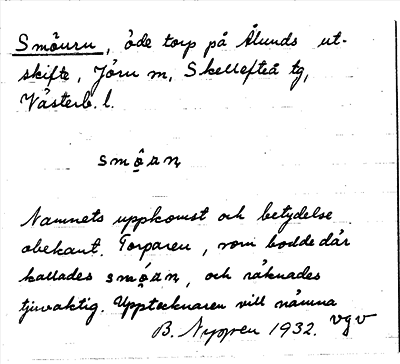 Småurn, öde torp på Ålunds ut-
skifte, Jörn m, Skellefteå tg,
Västerb. l.
smo̬an
Namnets uppkomst och betydelse
obekant. Torparen, som bodde där
kallades smo̬an, och räknades
tjuvaktig. Upptecknaren vill nämna
B. Nygren 1932. vgv